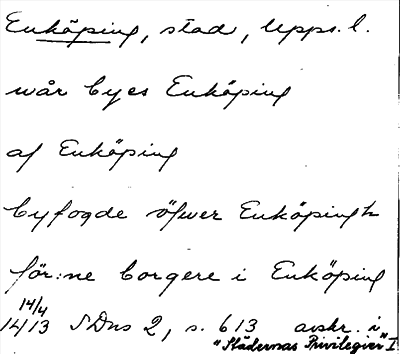 Enköping, stad, Upps. l.
wår byes Enköping
af Enköping
byfogde öfwer Enköpingh
för:ne borgere i Enköping
14/4
1413 SDns 2, s. 613 avskr. i
"Städernas Privilegier" I